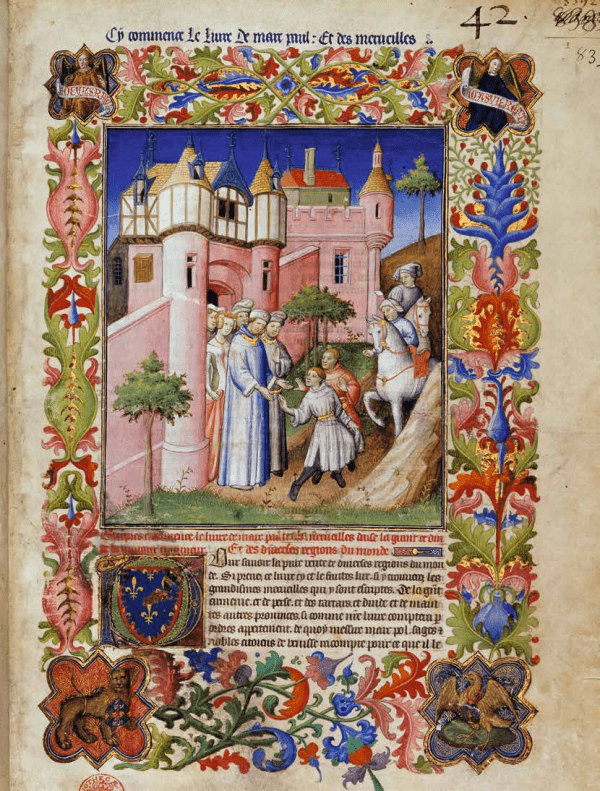 42.
Cy commence le liure de marc paul : Et des merueilles
83
apres commence le liure de marc paul des merueilles daise la grant et din
Et des diuerses regions du monde
Pour sauoir la pure verite de diuerses regions du mon
de. Si prenez ce liure cy et le faites lire. si y trouuerez les
grandismes merueilles qui y sont escriptes. De la grant
armenie. et de perse. et des tartars. et dinde. et de main
tes autres prouinces. si comme nre liure comptera p
ordres apertement. de quoy messire marc pol. sages et
nobles citoiens de venisse racompte pour ce que il le